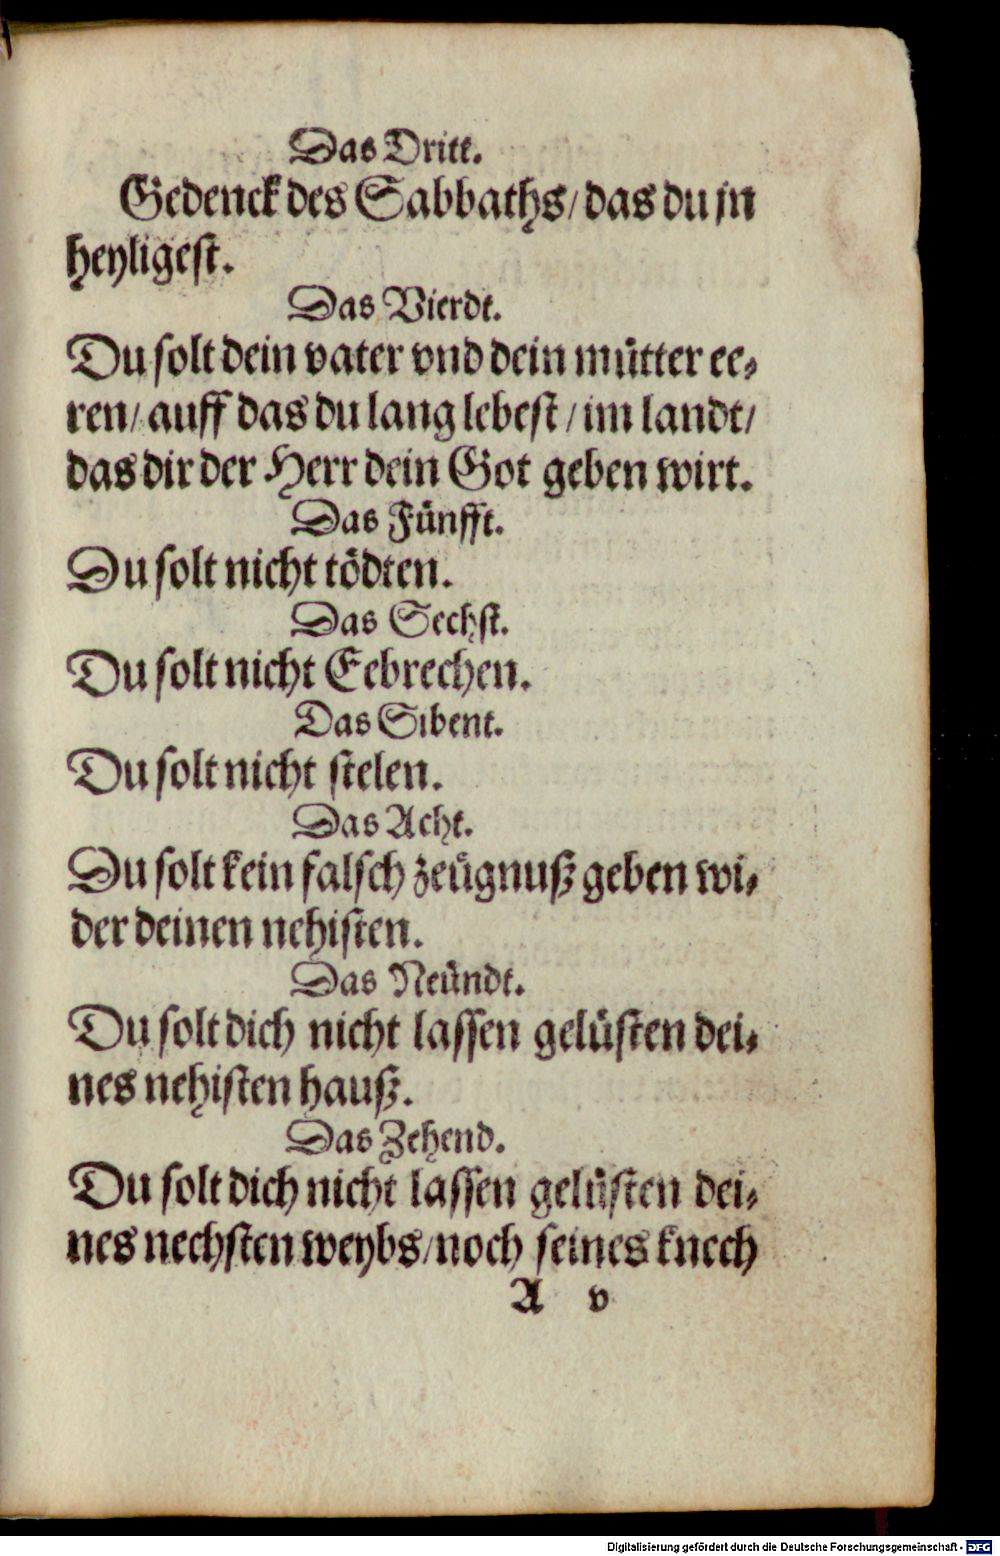 Das Dritt.
Gedenck des Sabbaths/ das du jn
heyligest.
Das Vierdt.
Du solt dein vater vnd dein můtter ee⸗
ren/ auff das du lang lebest/ im landt/
das dir der Herr dein Got geben wirt.
Das Fünfft.
Du solt nicht tödten.
Das Sechst.
Du solt nicht Eebrechen.
Das Sibent.
Du solt nicht stelen.
Das Acht.
Du solt kein falsch zeügnuß geben wi⸗
der deinen nehisten.
Das Neündt.
Du solt dich nicht lassen gelüsten dei⸗
nes nehisten hauß.
Das Zehend.
Du solt dich nicht lassen gelüsten dei⸗
nes nechsten weybs/ noch seines knech
A v
Digitalisierung gefördert durch die Deutsche Forschungsgemeinschaft - DFG